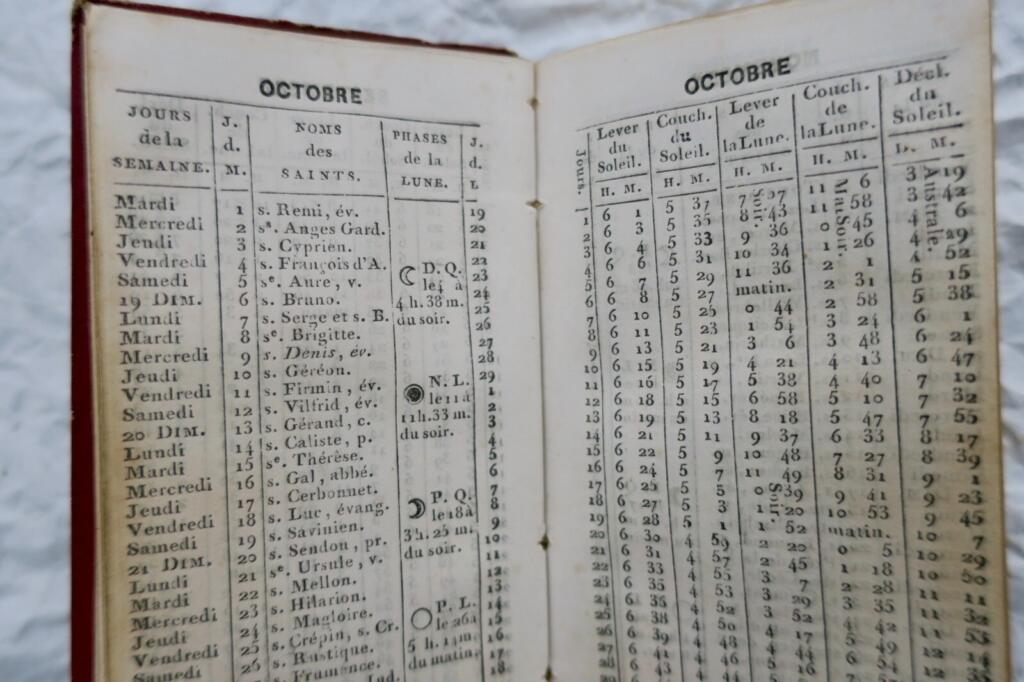 OCTOBRE
JOURS de la SEMAINE. J. d. M. NOMS des SAINTS. PHASES de la LUNE. J. d. L
Mardi 1 s. Remi, év. 19
Mercredi 2 sˢ. Anges Gard. 20
Jeudi 3 s. Cyprien. 21
Vendredi 4 s. François d'A. 22
Samedi 5 sᵉ. Aure, v. D. Q. 23
19 DIM. 6 s. Bruno. le 4 à 24
Lundi 7 s. Serge et s. B. 4 h. 38 m. 25
Mardi 8 sᵉ. Brigitte. du soir. 26
Mercredi 9 s. Denis, év. 27
Jeudi 10 s. Géréon. 28
Vendredi 11 s. Firmin, év. N. L. 29
Samedi 12 s. Vilfrid, év. le 11 à 1
20 DIM. 13 s. Gérand, c. 11 h. 33 m. 2
Lundi 14 s. Caliste, p. du soir. 3
Mardi 15 sᵉ. Thérèse. 4
Mercredi 16 s. Gal, abbé. 5
Jeudi 17 s. Cerbonnet. 6
Vendredi 18 s. Luc, évang. P. Q. 7
Samedi 19 s. Savinien. le 18 à 8
21 DIM. 20 s. Sendou, pr. 3 h. 25 m. 9
Lundi 21 sᵉ. Ursule, v. du soir. 10
Mardi 22 s. Mellon.
Mercredi 23 s. Hilarion. 12
Jeudi 24 s. Magloire. P. L. 13
Vendredi 25 s. Crépin, s. Cr. le 26 à 14
Samedi 26 s. Rustique. 5 h. 14 m. 15
s. Frumence. du matin. 16
OCTOBRE
Jours. Lever du Soleil. Couch. du Soleil. Lever de la Lune. Couch. de la Lune. Décl. du Soleil.
H. M. H. M. H. M. H. M. D. M.
1 6 1 5 37 7 Soir. 11 Mat. 6 3 Australe. 19
2 6 3 5 35 8 43 11 58 3 42
3 6 4 5 33 9 36 0 Soir. 45 4 6
4 6 6 5 31 10 34 1 26 4 29
5 6 7 5 29 11 36 2 1 4 52
6 6 8 5 27 matin. 2 31 5 15
7 6 10 5 25 0 44 2 58 5 38
8 6 11 5 23 1 54 3 24 6 1
9 6 13 5 21 3 6 3 48 6 24
10 6 15 5 19 4 21 4 13 6 47
11 6 16 5 17 5 38 4 40 7 10
12 6 18 5 15 6 58 5 10 7 32
13 6 19 5 13 8 18 5 47 7 55
14 6 21 5 11 9 37 6 33 8 17
15 6 22 5 9 10 48 7 27 8 39
16 6 24 5 7 11 49 8 31 9 1
17 6 25 5 5 0 Soir. 39 9 41 9 23
18 6 27 5 3 1 20 10 53 9 45
19 6 28 5 1 1 52 matin. 10 7
20 6 30 4 59 2 20 0 5 10 29
21 6 31 4 57 2 45 1 18 10 50
22 6 33 4 55 3 7 2 28 11 11
23 6 35 4 53 3 29 3 35 11
24 6 36 4 52 3 52 4 44 11 53
25 6 38 4 50 4 17 5 49 12 14
26 6 39 4 48 4 44 6 54 12